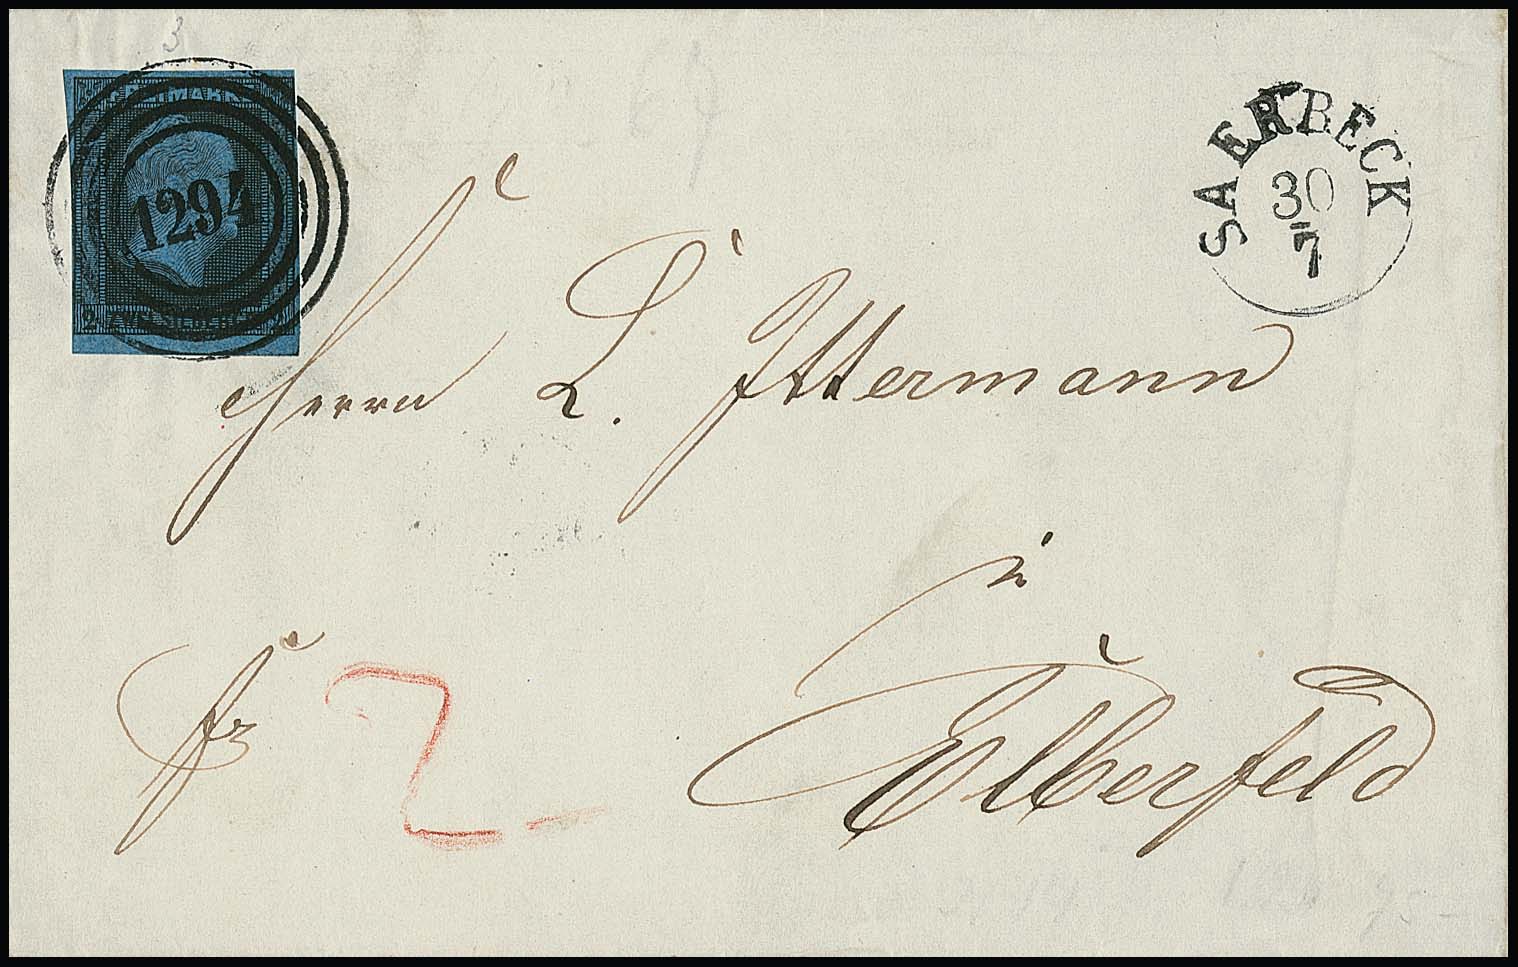 3
FREIMARKE
1294
2 ZWEI SILBERGR. 2
SAERBECK
30
7
Herrn L. Ittermann
in
Elberfeld
frz
2